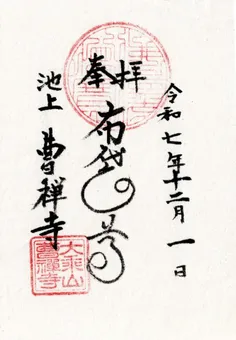 奉拝
令和七年十二月一日
布袋尊
池上 曹禅寺
大乗山
曹禅寺